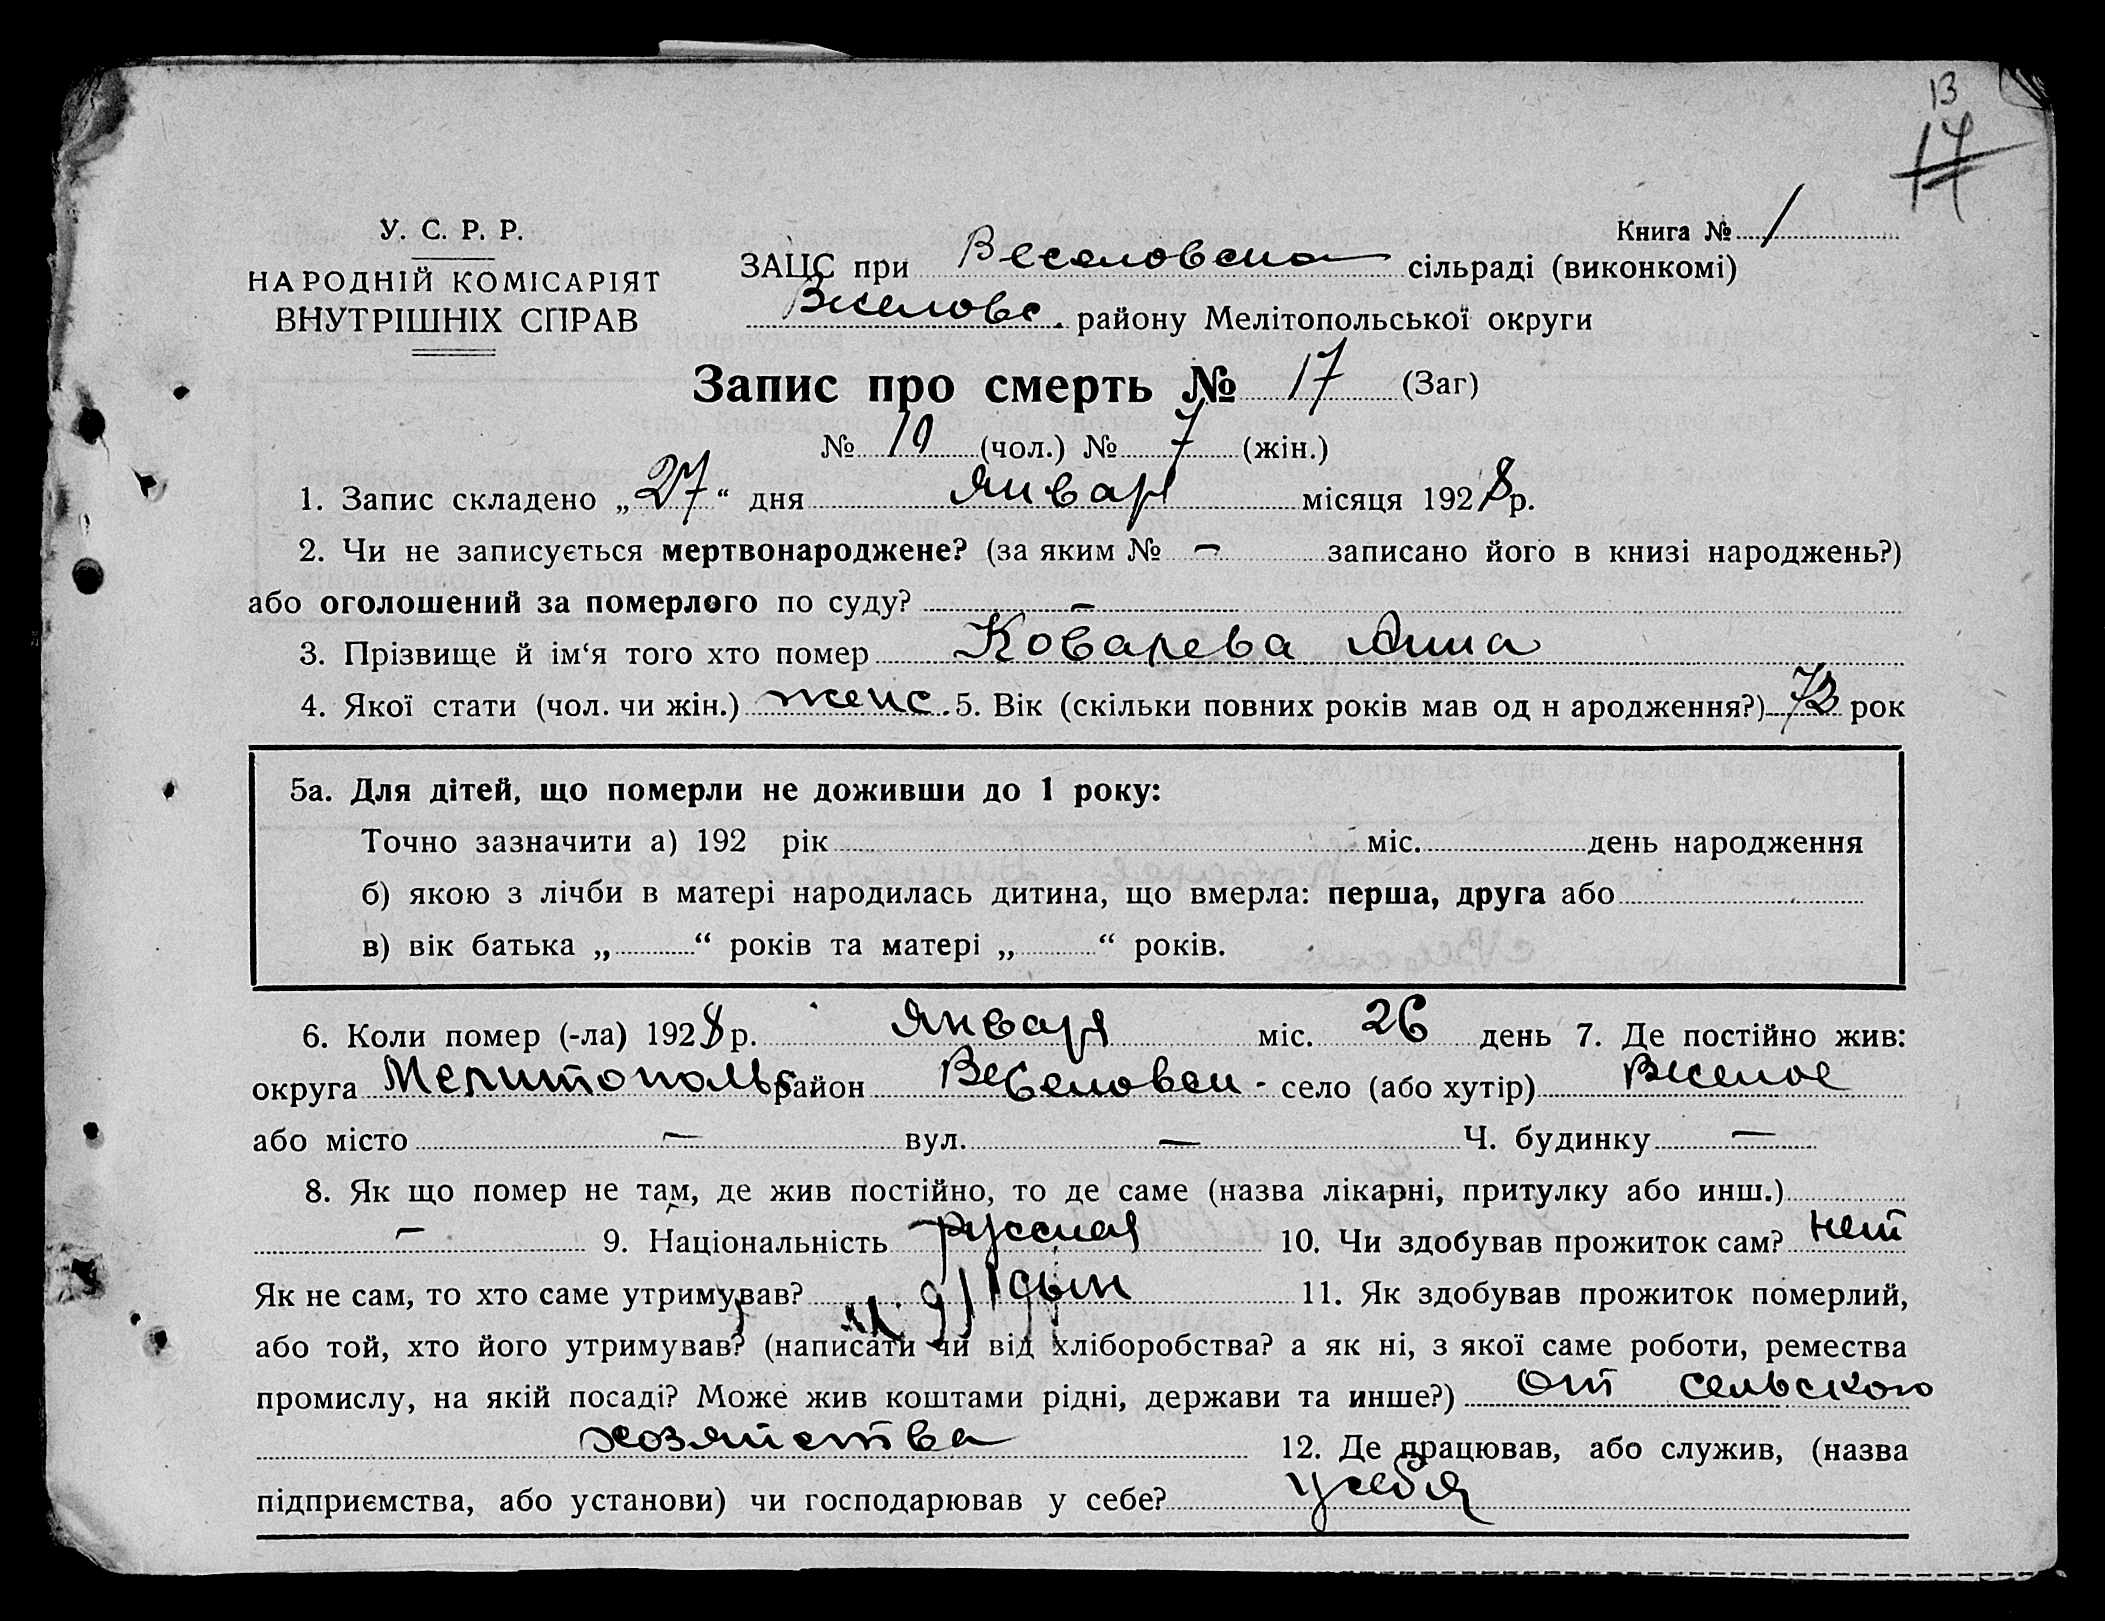 13
17
У. С. Р. Р.
НАРОДНІЙ КОМІСАРІЯТ
ВНУТРІШНІХ СПРАВ
Книга № 1
ЗАЦС при Веселовском сільраді (виконкомі)
Веселовс. району Мелітопольської округи
Запис про смерть № 17 (Заг)
№ 10 (чол.) № 7 (жін.)
1. Запис складено „27“ дня Января місяця 1928 р.
2. Чи не записується мертвонароджене? (за яким № — записано його в книзі народжень?)
або оголошений за померлого по суду? —
3. Прізвище й ім‘я того хто помер Ковалева Анна
4. Якої стати (чол. чи жін.) женс. 5. Вік (скільки повних років мав од н ародження?) 73 рок
5а. Для дітей, що померли не доживши до 1 року:
Точно зазначити а) 192 рік міс. день народження
б) якою з лічби в матері народилась дитина, що вмерла: перша, друга або
в) вік батька „ “ років та матері „ “ років.
6. Коли помер (-ла) 1928 р. Января міс. 26 день 7. Де постійно жив:
округа Мелитополь район Веселовск - село (або хутір) Веселое
або місто — вул. — Ч. будинку —
8. Як що помер не там, де жив постійно, то де саме (назва лікарні, притулку або инш.)
— 9. Національність русская 10. Чи здобував прожиток сам? нет
Як не сам, то хто саме утримував? 11. Як здобував прожиток померлий,
або той, хто його утримував? (написати чи від хліборобства? а як ні, з якої саме роботи, ремества
промислу, на якій посаді? Може жив коштами рідні, держави та инше?) от сельского
хозяйства 12. Де працював, або служив, (назва
підприємства, або установи) чи господарював у себе? у себя